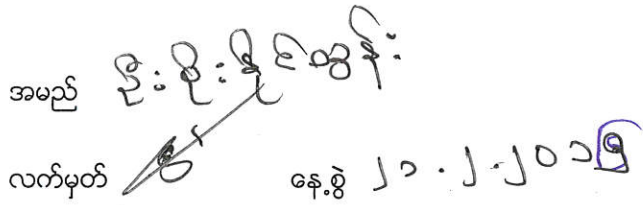 အမည် ဦးစိုးနိုင်ထွန်း
လက်မှတ် နေ့စွဲ ၂၁.၂.၂၀၁၅